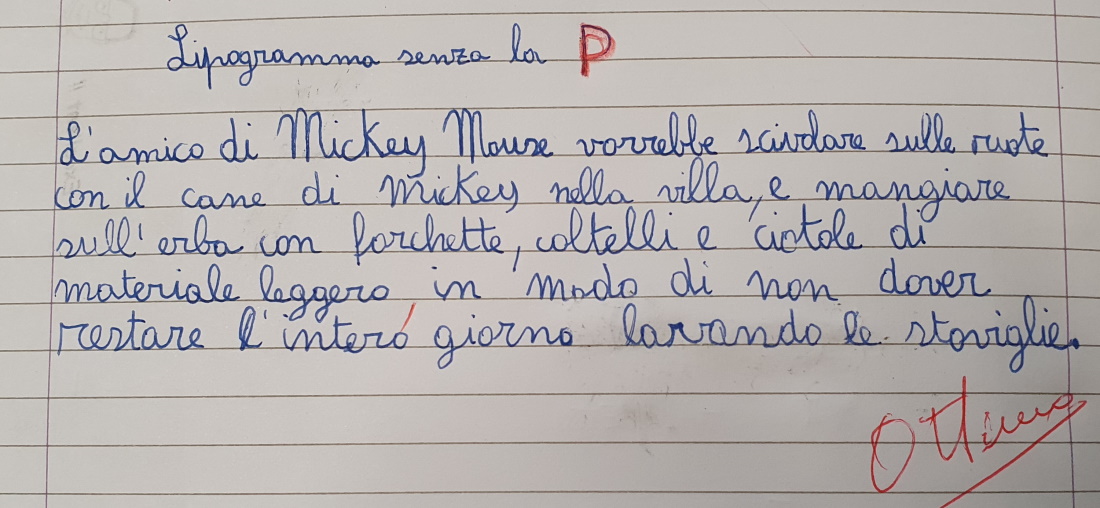 Lipogramma senza la P
L'amico di Mickey Mouse vorrebbe scivolare sulle ruote
con il cane di Mickey nella villa, e mangiare
sull'erba con forchette, coltelli e ciotole di
materiale leggero, in modo di non dover
restare l'intero giorno lavando le stoviglie.
Ottimo